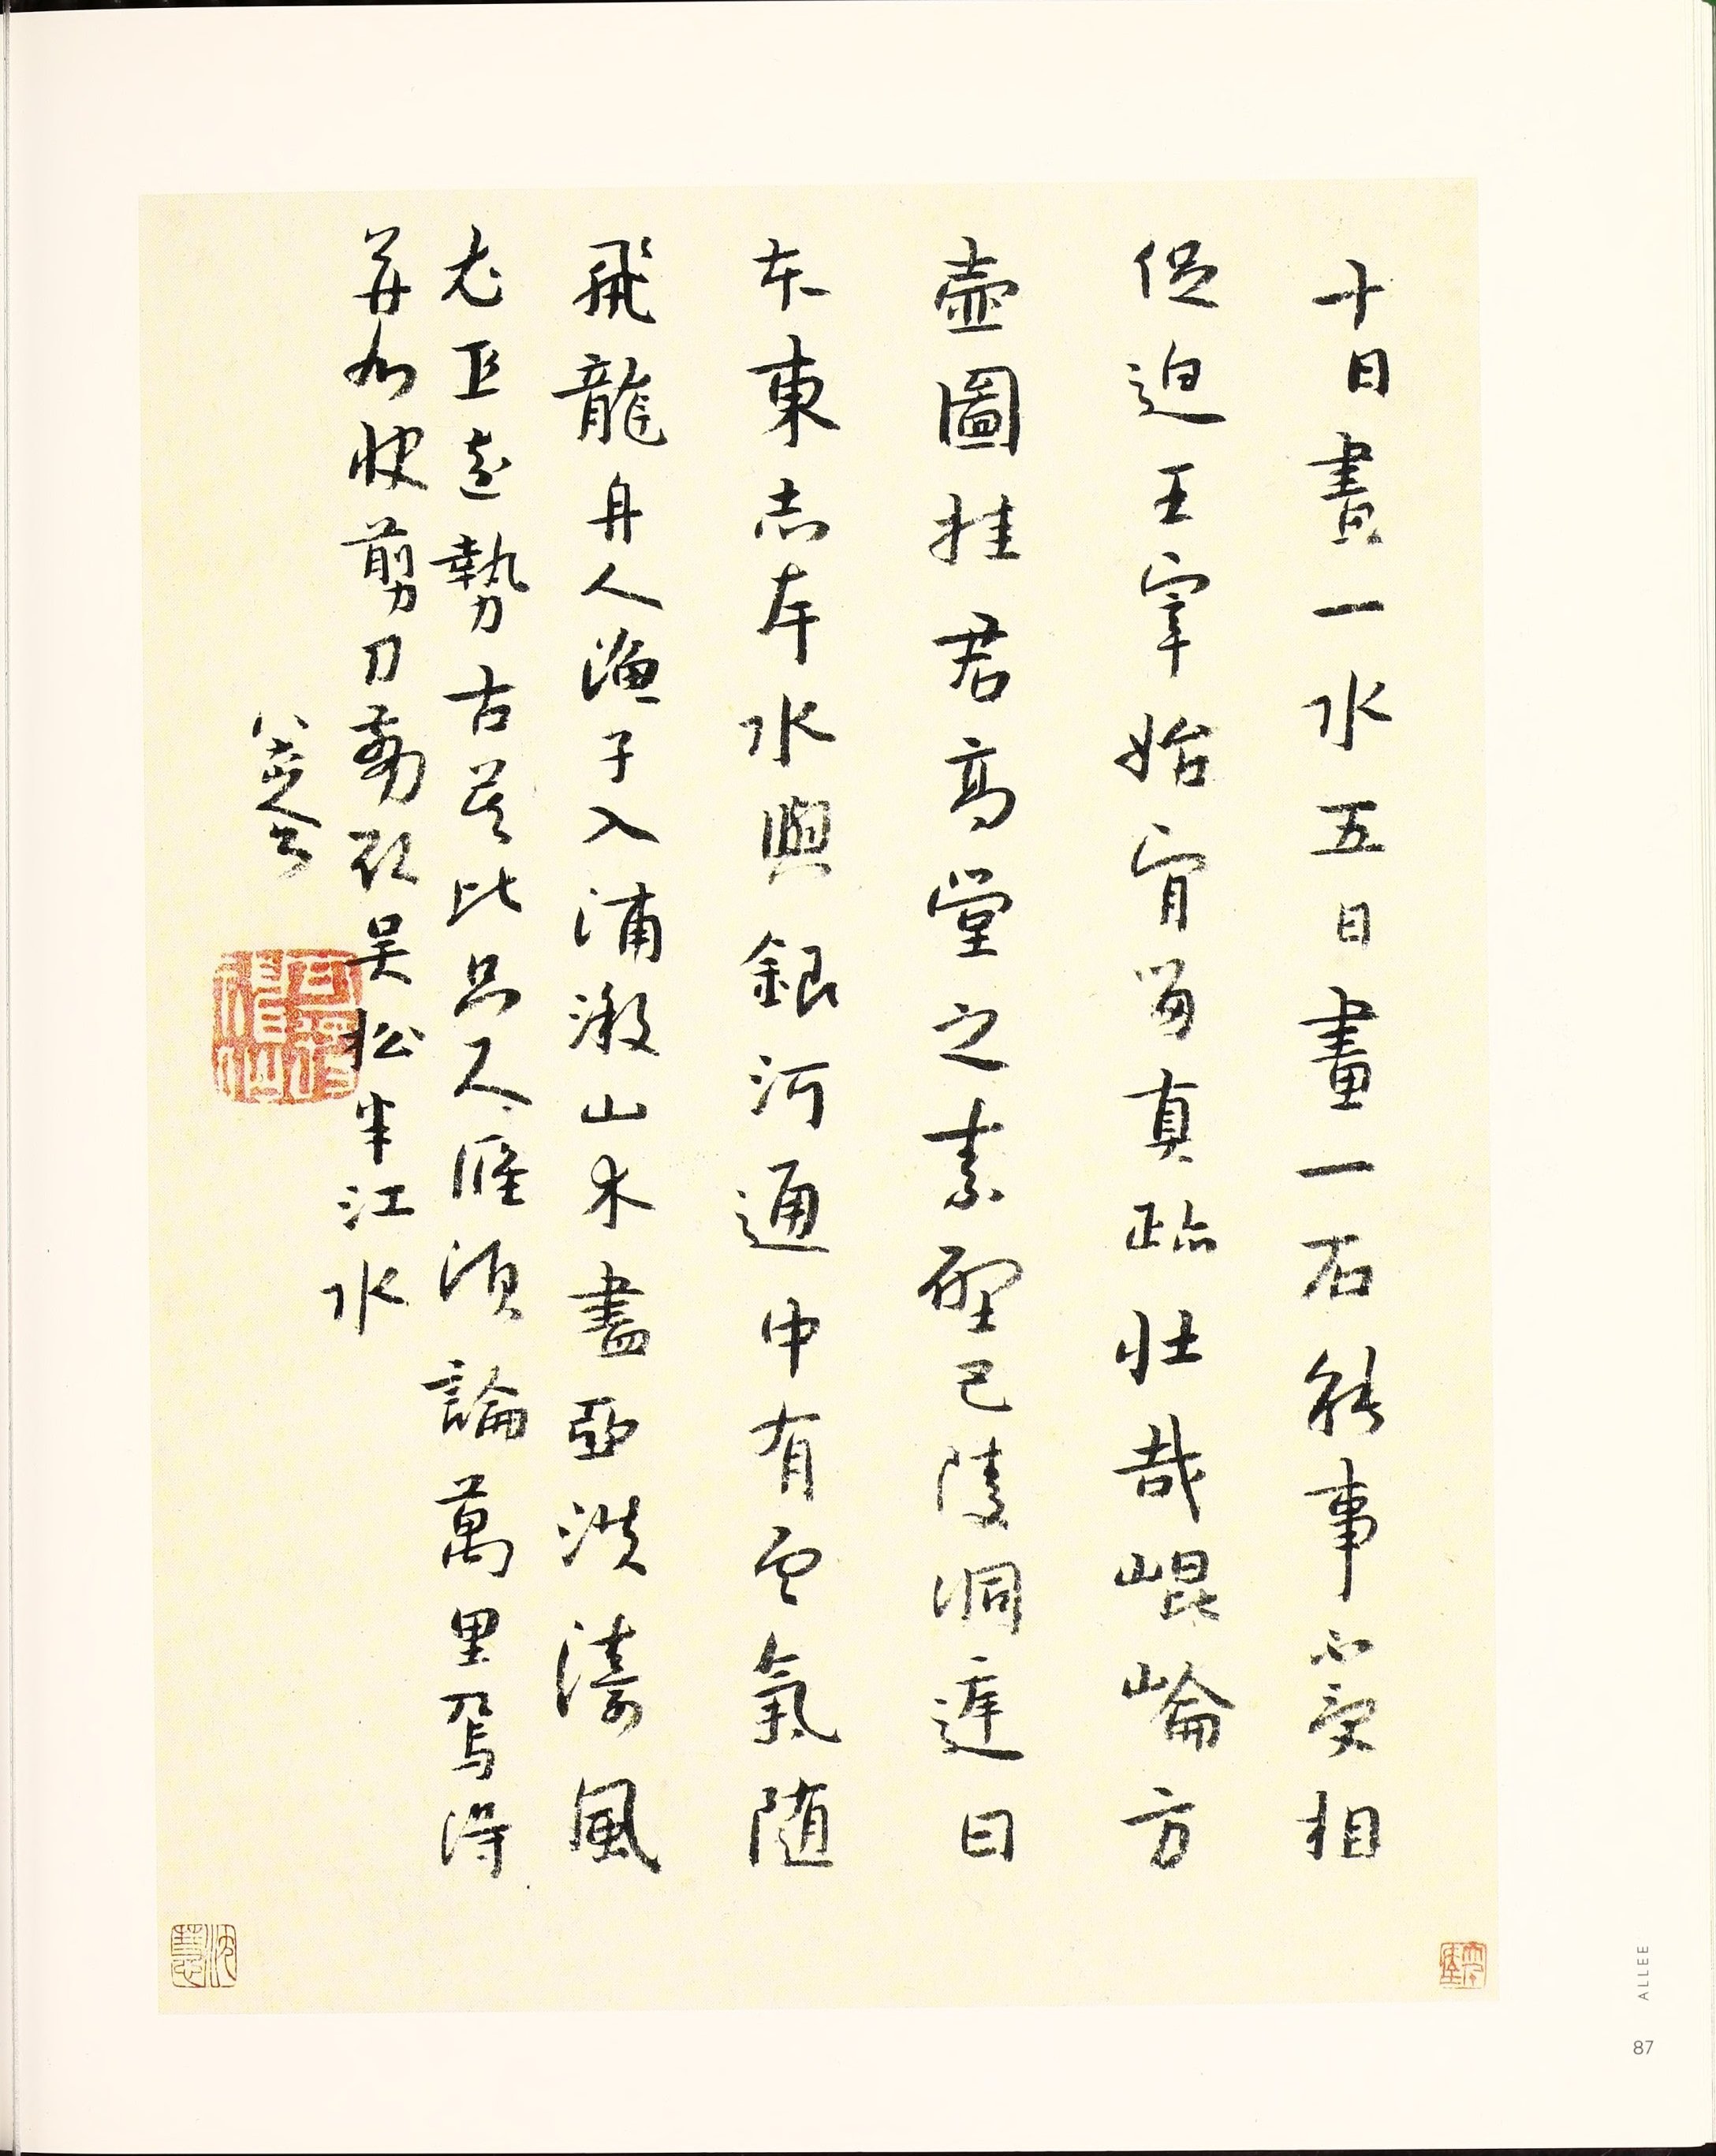 十日畫一水五日畫一石能事不受相
促迫王宰始肯留真跡壯哉崐崘方
壺圖挂君高堂之素壁巴陵洞庭日
本東赤岸水與銀河通中有雲氣随
飛龍舟人漁子入浦漵山木盡亞洪濤風
尤工遠勢古莫比咫尺應須論萬里焉得
并州快剪刀剪取吳松半江水
八大山人
可得神仙
沈慧
ALLEE
87